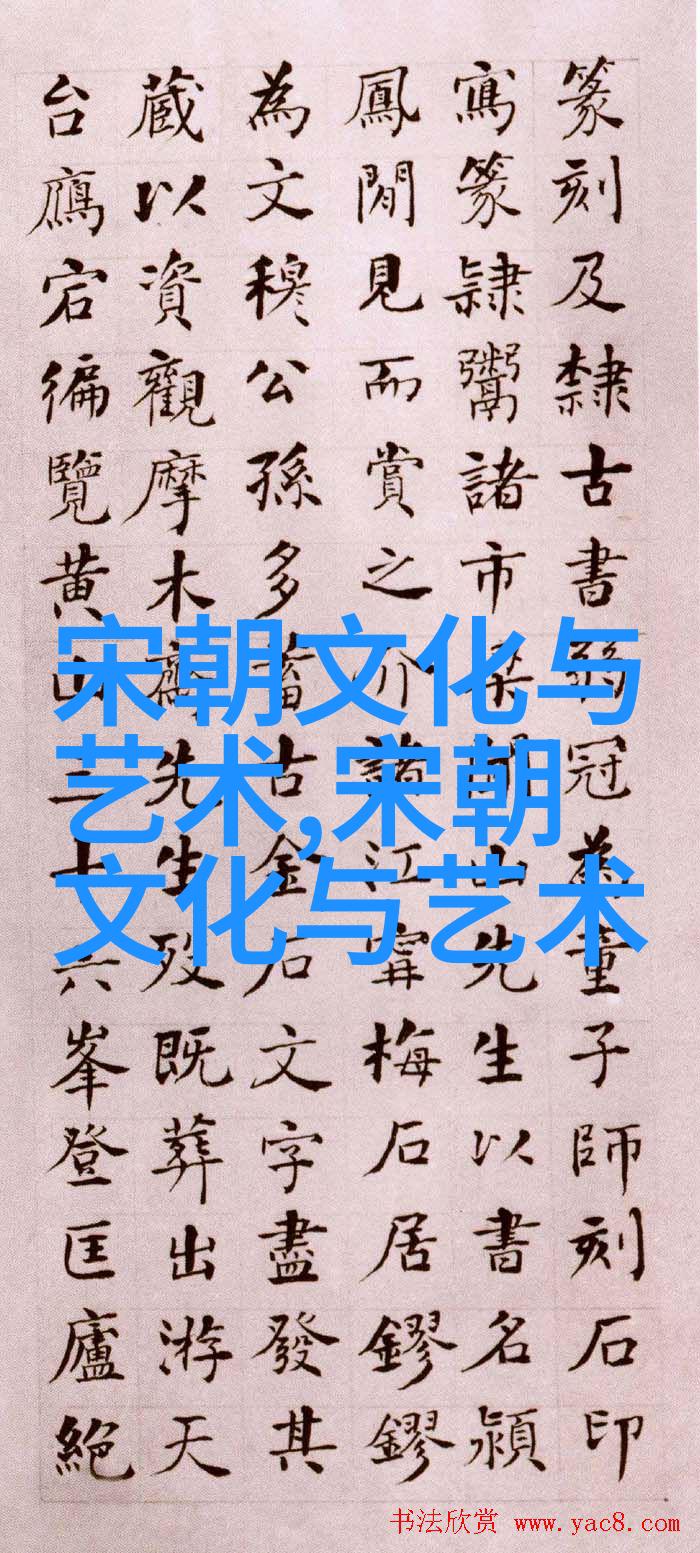 篆刻及隸古書弱冠為董子師刻石印
寫篆隸鬻諸市梁聞山先生以書名潁
鳳閒見而賞之介諸江甯梅石居鏐鏐
為文穆公孫多蓄古金石文字盡發其
蔵以資觀摩木齋先生歿既葬出游天
台鴈宕徧覽黄山三十六峯登匡廬絕
宋朝文化与
艺术,宋朝
文化与艺术
书法欣赏 www.yac8.com